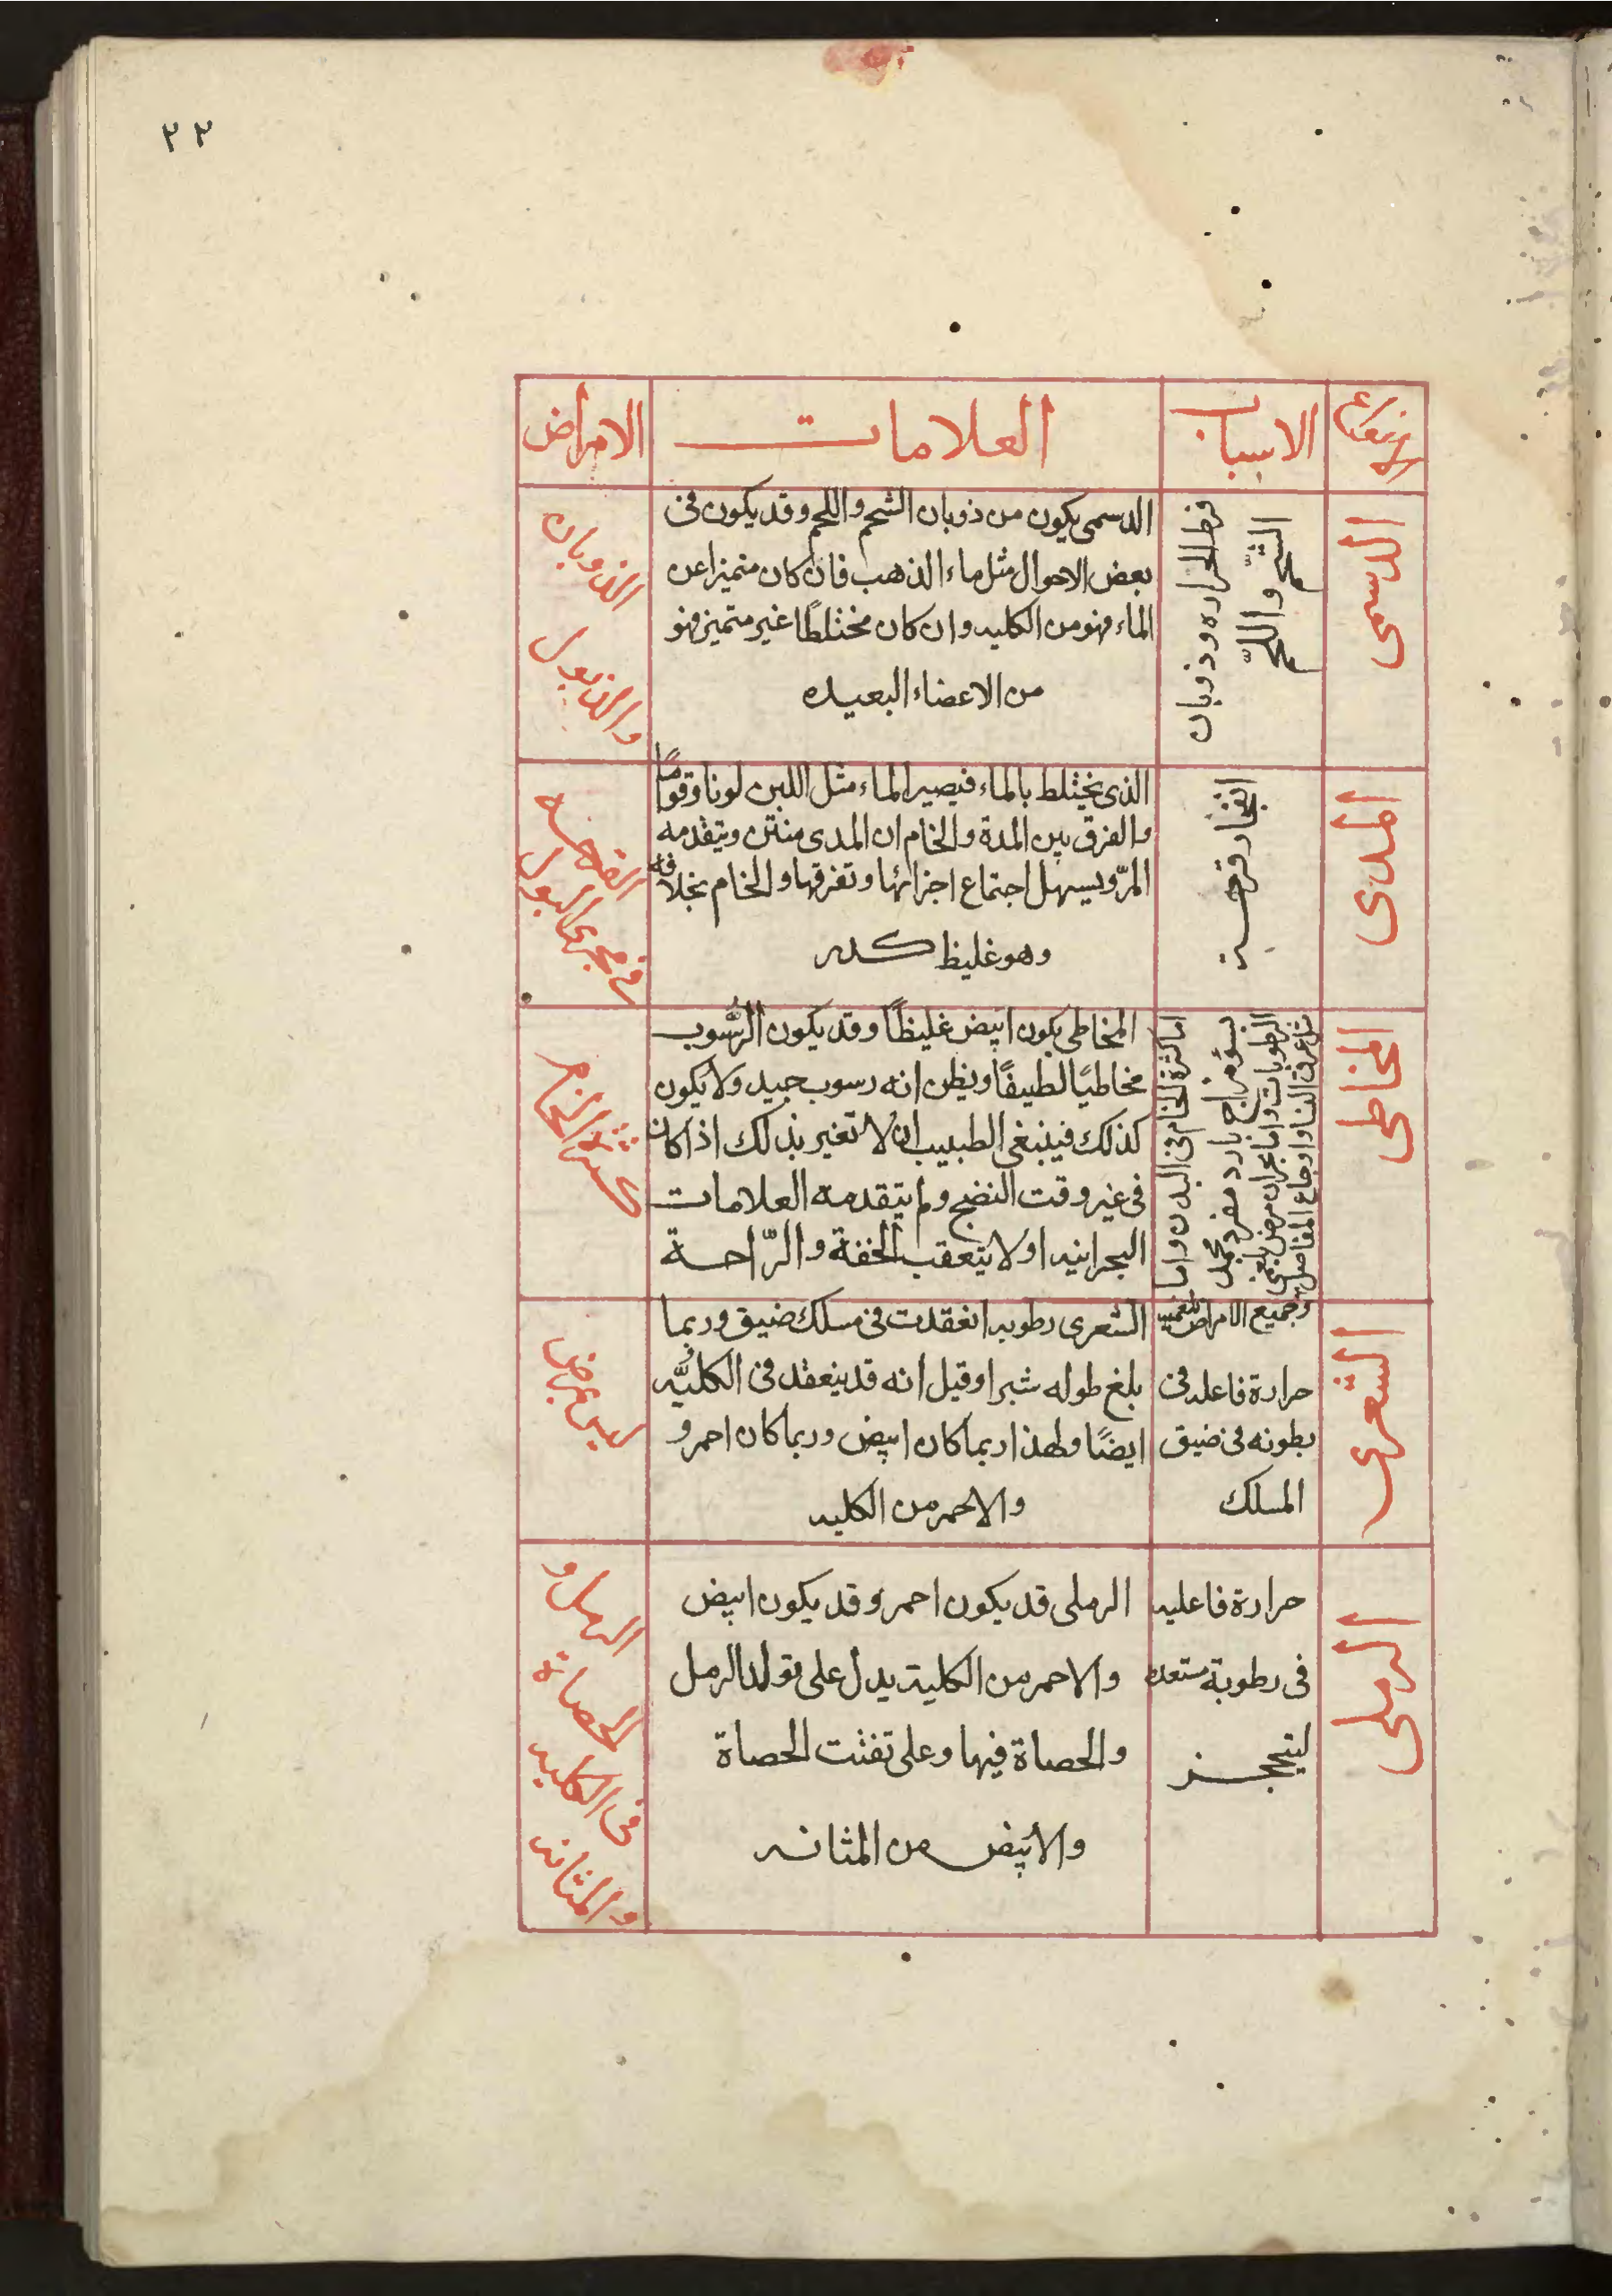 ٢٢
الاسباب
العلامات
الامراض
الدسمى
فرط الحراره وذوبان
الشحم واللحم
الدسمى يكون من ذوبان الشحم واللحم وقد يكون فى
بعض الاحوال مثل ماء الذهب فان كان متميزا عن
الماء فهو من الكليه وان كان مختلطًا غير متميز فهو
من الاعضاء البعيده
الذوبان
والذبول
المدى
انفجار قرحة
الذى يختلط بالماء فيصير الماء مثل اللبن لونا وقوامًا
والفرق بين المدة والخام ان المدى منتن ويتقدمه
المرّ ويسهل اجتماع اجزائها وتفرقها والخام بخلافه
وهو غليظ كدر
القرحه
فى مجرى البول
المخاطى
اما كثرة الخام فى البدن واما
لسؤ مزاج بارد مفرد
الرطوبات واما بحران مرض بلغمى
مثل عرق النسا واوجاع المفاصل
وجميع الامراض بلغميه
المخاطى يكون ابيض غليظًا وقد يكون الرُّسوب
مخاطيًا لطيفًا ويظن انه رسوب جيد ولا يكون
كذلك فينبغى الطبيب ان لا تغير بذلك اذا كان
فى غير وقت النضج ولم يتقدمه العلامات
البحرانيه او لا يتعقب الخفة والرّاحة
كثرة الخام
الشعرى
حرارة فاعله فى
بطونه فى ضيق
المسلك
الشعرى رطوبه انعقدت فى مسلك ضيق وربما
بلغ طوله شبرا وقيل انه قد ينعقد فى الكليه
ايضًا ولهذا ربما كان ابيض وربما كان احمر و
والاحمر من الكليه
ليس بمرض
الرملى
حرارة فاعليه
فى رطوبة مستعده
ليتحجز
الرملى قد يكون احمر وقد يكون ابيض
والاحمر من الكلية يدل على تولد الرمل
والحصاة فيها وعلى تفتت الحصاة
والابيض من المثانه
الرمل و
الحصاة
فى الكليه
والمثانه